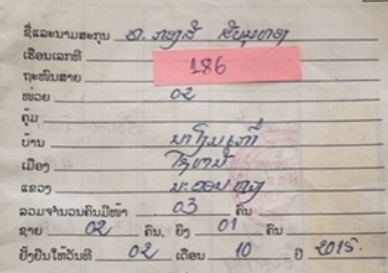 ຊື່ແລະນາມສະກຸນ ທ. ກອງສີ ສີບຸນທອງ
ເຮືອນເລກທີ 186
ຖະໜົນສາຍ
ໜ່ວຍ 02
ຄຸ້ມ
ບ້ານ ນາໂນນເກົ່າ
ເມືອງ
ແຂວງ ນະຄອນຫຼວງ
ລວມຈຳນວນຄົນມີໜ້າ 03 ຄົນ
ຊາຍ 02 ຄົນ, ຍິງ 01 ຄົນ
ຢັ້ງຢືນໃຫ້ວັນທີ 02 ເດືອນ 10 ປີ 2015.